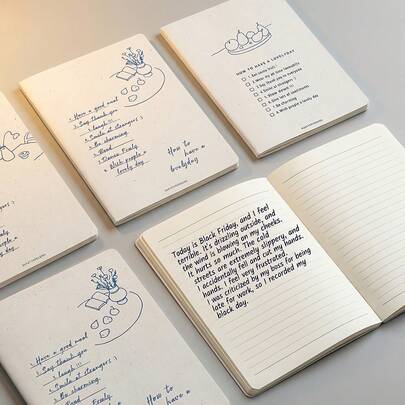 Have a good meal
Say thank you
Laugh !!!
Smile at strangers :)
Be charming.
Read
Dance Freely.
Wish people a
lovely day
How to
have a
lovelyday
HOW TO HAVE A LOVELY DAY
1. Eat
2. Wear my all time favourite
3. Say thank you to everyone
4. Smile at strangers :)
5. Slow down !!
6. Give out
7. Be charming
8. Wish people a lovely day
Today is Black Friday, and I feel
terrible. It's drizzling outside, and
the wind is blowing on my cheeks.
It hurts so much. The cold
streets are extremely slippery, and
I accidentally fell and cut my hands.
hands. I feel very frustrated.
was criticized by my boss for being
late for work, so I recorded my
black day.
Have a good meal
Say thank you
Laugh !!!
Smile at strangers :)
Be charming.
Read
How to
have a